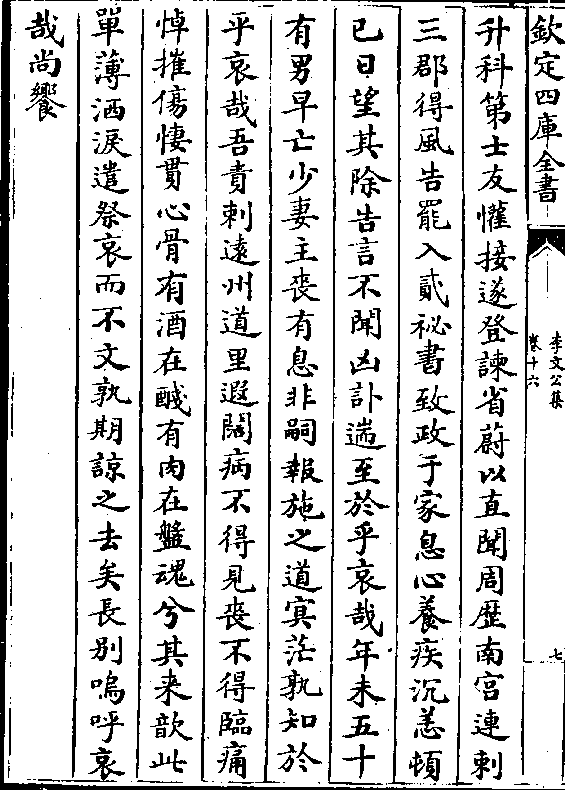 欽定四庫全書
李文公集
卷十六
七
升科第士友懽接遂登諫省蔚以直聞周歴南宫連刺
三郡得風告罷入貳祕書致政于家息心養疾沉恙頓
已日望其除告言不聞凶訃遄至於乎哀哉年未五十
有男早亡少妻主喪有息非嗣報施之道㝠茫孰知於
乎哀哉吾責刺遠州道里遐闊病不得見喪不得臨痛
悼摧傷悽貫心骨有酒在醆有肉在盤魂兮其来歆此
單薄洒淚遣祭哀而不文孰期諒之去矣長别嗚呼哀
哉尚饗